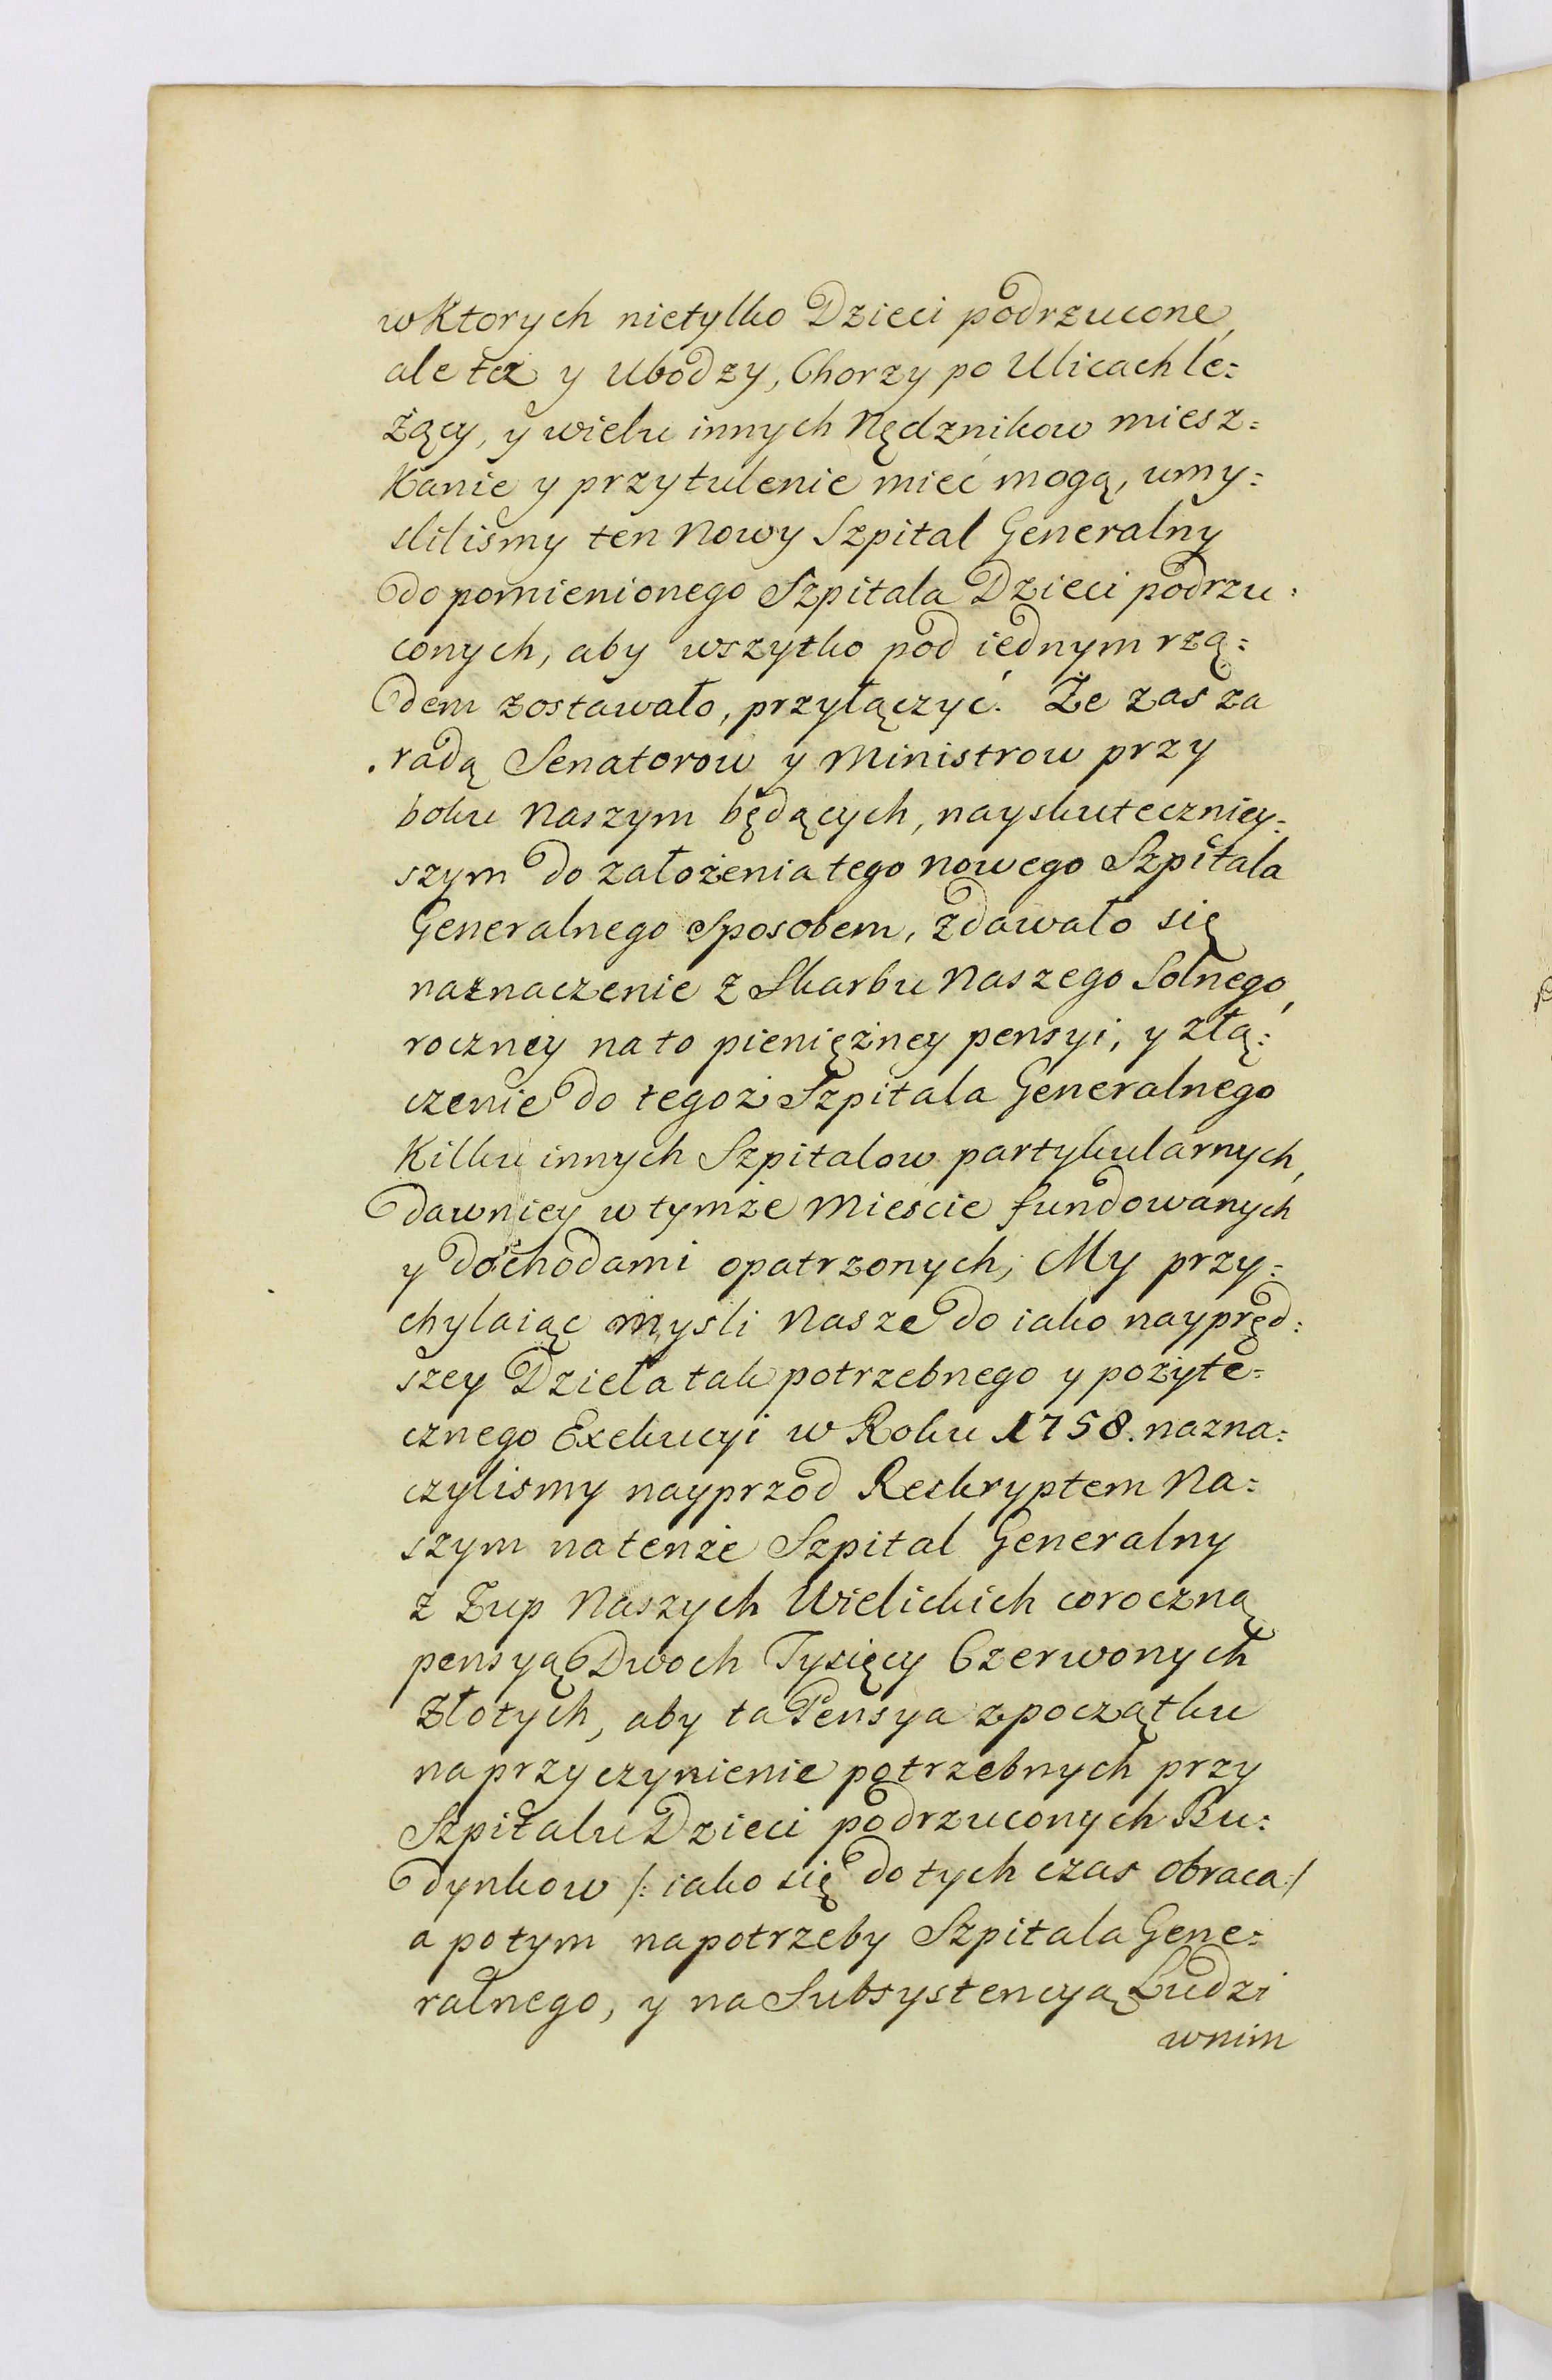 w Ktorych nietylko Dzieci podrzucone,
ale też y Ubodzy, Chorzy po Ulicach le=
żący, y wielu innych Nędznikow miesz=
Kanie y przytulenie mieć mogą, umy=
sliliśmy ten Nowy Szpital Generalny
do pomienionego Szpitala Dzieci podrzu=
conych, aby wszytko pod iednym rzą=
dem zostawało, przyłączyć. Że zas za
radą Senatorow y Ministrow przy
boku Naszym będących, nayskuteczniey=
szym do założenia tego nowego Szpitala
Generalnego Sposobem, zdawało się
naznaczenie z Skarbu Naszego Solnego,
roczney na to pieniężney pensyi, y złą=
czenie do tegoż Szpitala Generalnego
Kilku innych Szpitalow partykularnych,
dawniey w tymże Mieście fundowanych
y dochodami opatrzonych, My przy=
chylaiąc mysli Nasze do iako naypręd=
szey Dzieła tak potrzebnego y pożyte=
cznego Exekucyi w Roku 1758. nazna=
czylismy nayprzod Reskryptem Na=
szym na tenże Szpital Generalny
z Żup Naszych Wielickich coroczną
pensyą Dwoch Tysięcy Czerwonych
Złotych, aby ta Pensya z początku
na przyczynienie potrzebnych przy
Szpitalu Dzieci podrzuconych Bu=
dynkow /: iako się do tych czas obraca :/
a potym na potrzeby Szpitala Gene=
ralnego, y na Subsystencyą Ludzi
w nim